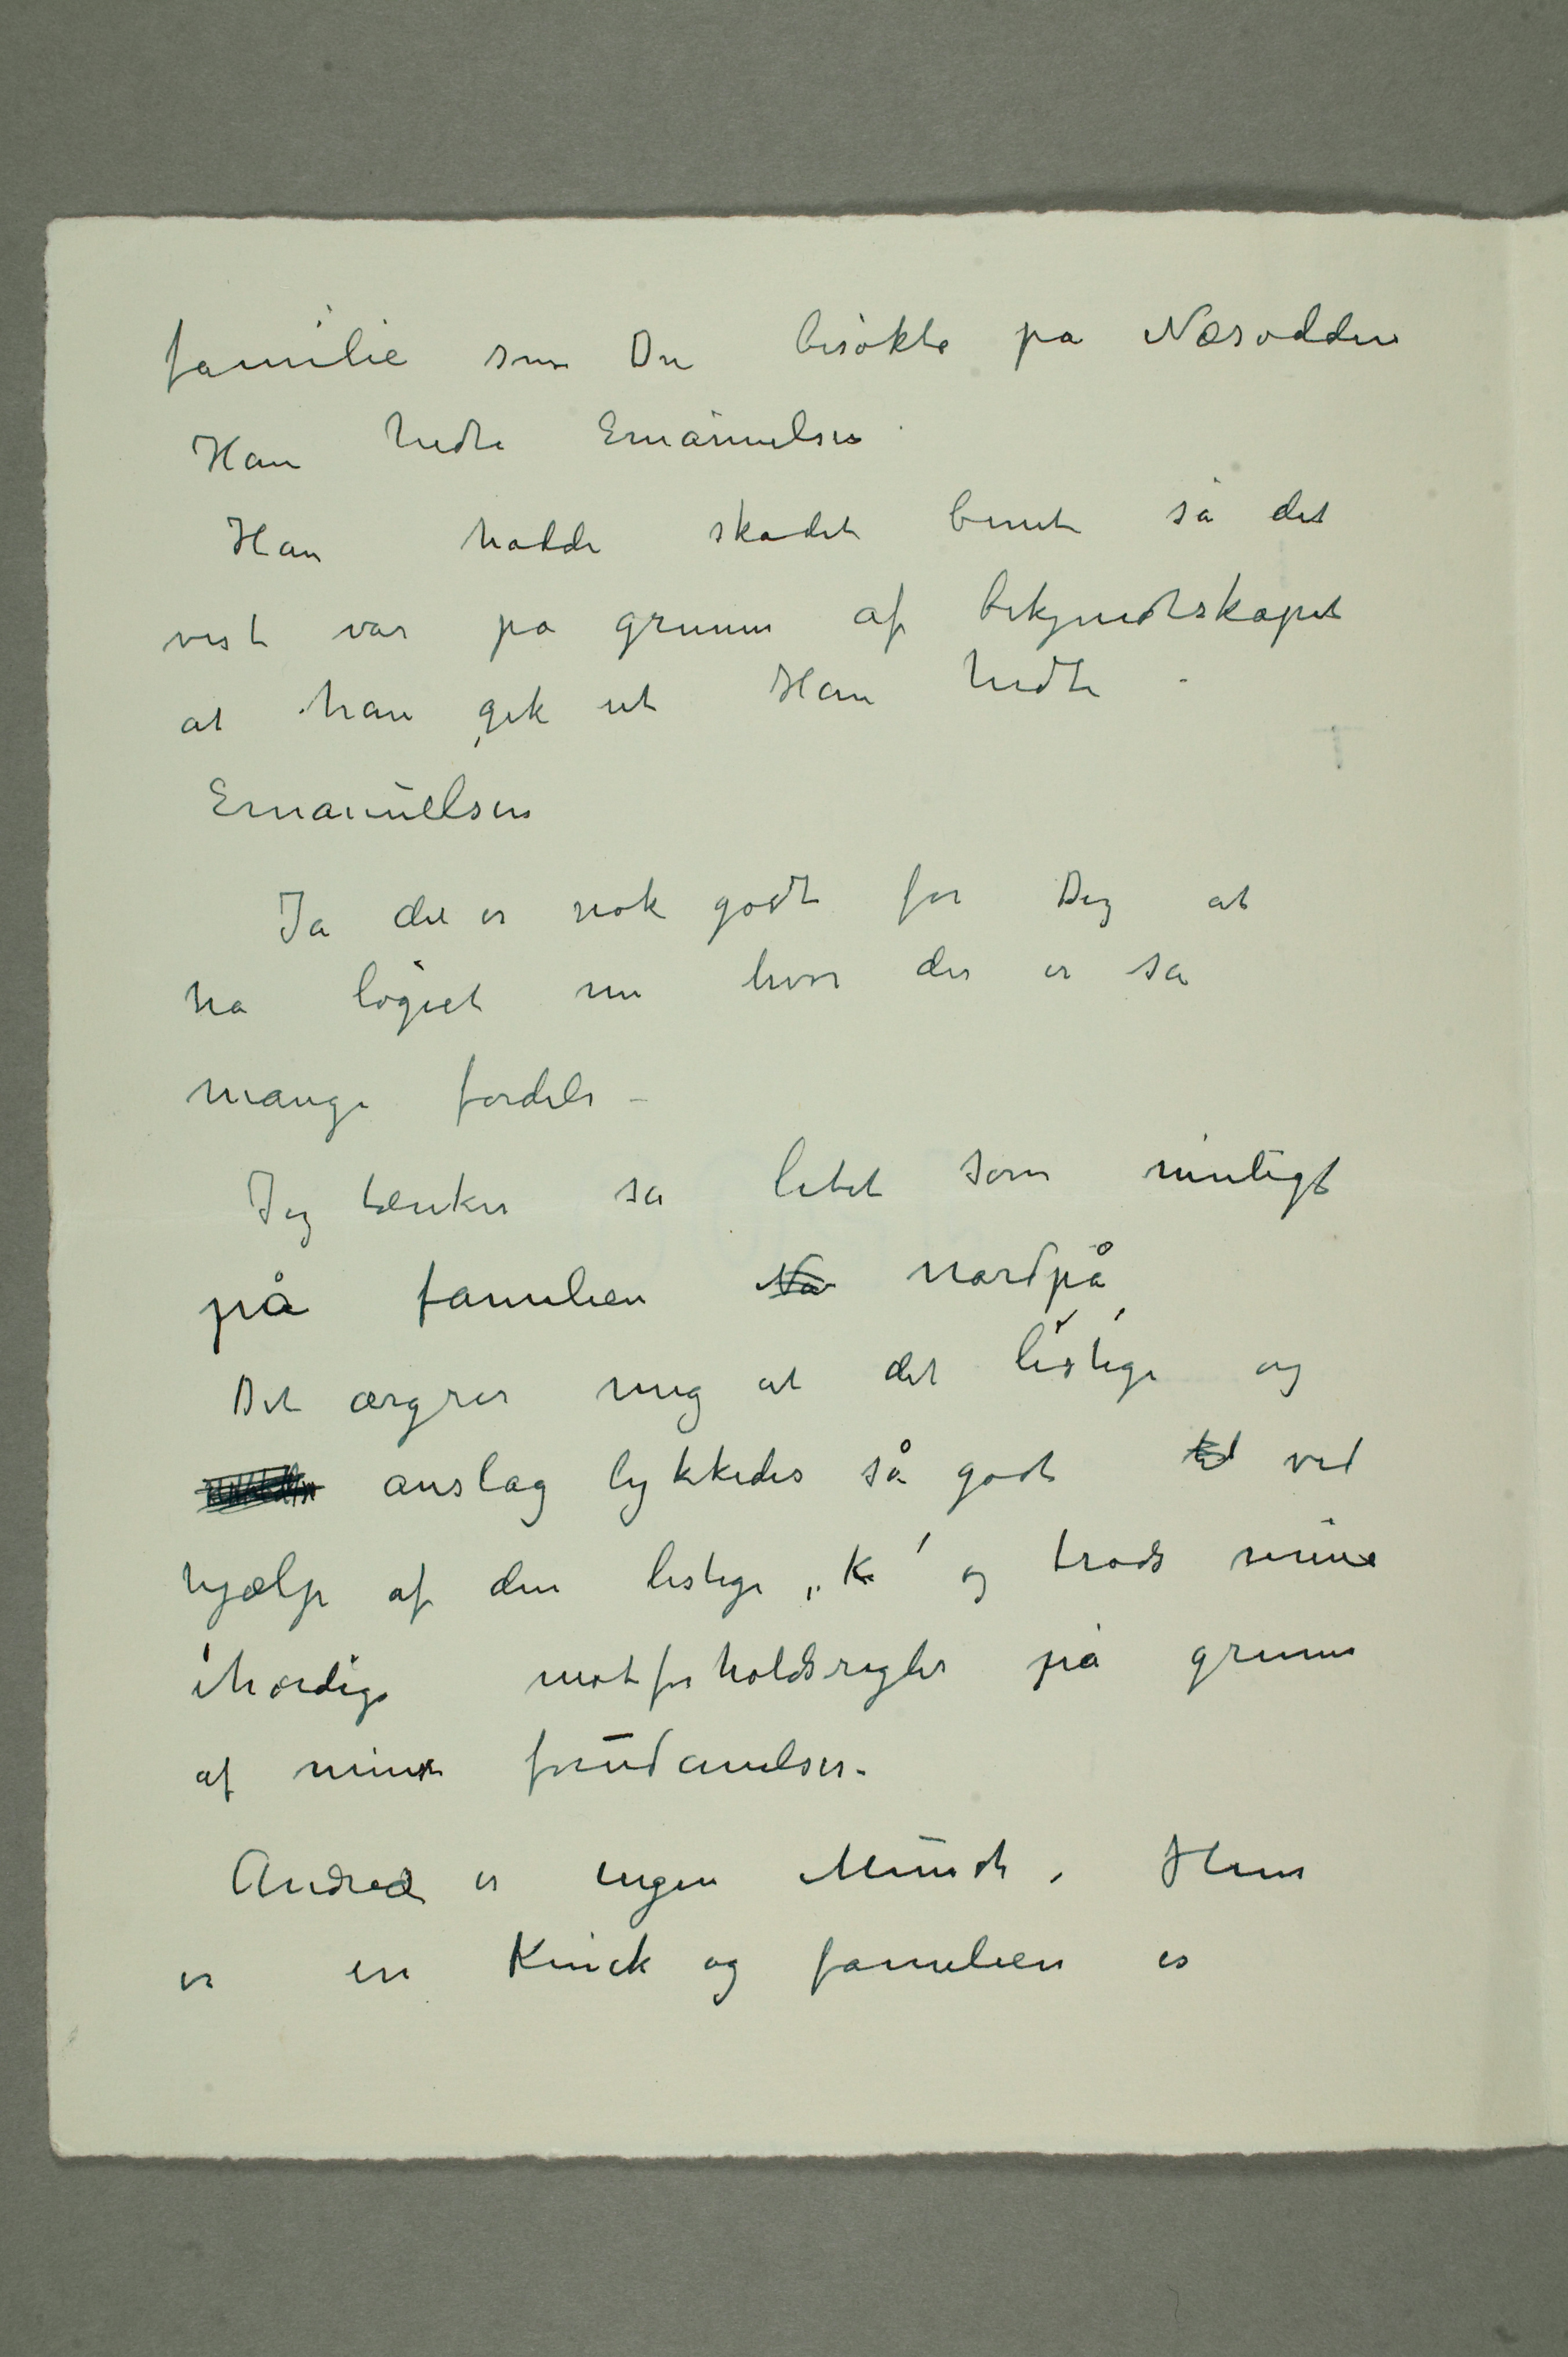 familie som Du besøkte på Næsodden
Han hedte Emanuelsen
Han hadde skadet benet så det
vist var på grunn af bekjendtskapet
at han gik ut Han hedte –
Emanuelsen
Ja det er nok godt for Dig at
ha logiet nu hvor der er så
mange fordele –
Jeg tænker så litet som muligt
på familien Na nordpå
Det ærgrer mig at det listige og
anslag lykkedes så godt til ved
hjælp af den listige „K" og trods mine
ihærdige motforholdsregler på grunn
af mine forudanelser.
Andrea er ingen Munch. Hun
er en Kinck og familien er